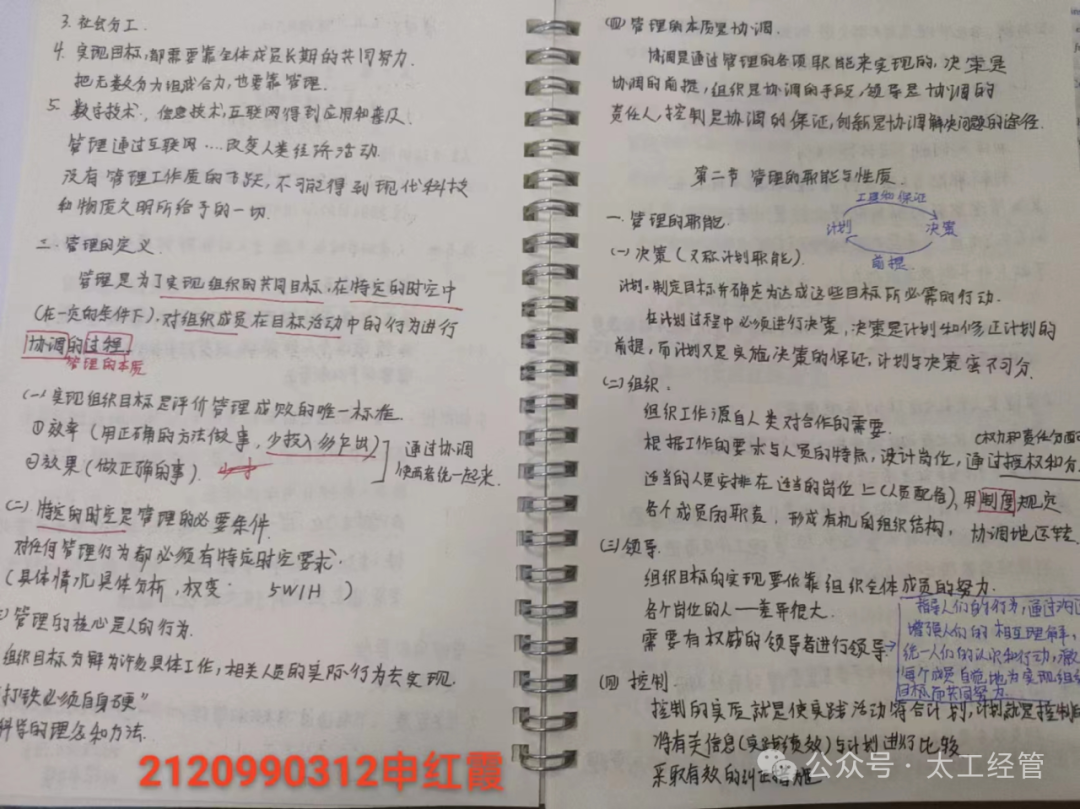 3. 社会分工.
4. 实现目标,都需要靠全体成员长期的共同努力.
把无数分力组成合力,也要靠管理.
5. 数字技术、信息技术,互联网得到应用和普及.
管理通过互联网....改变人类经济活动.
没有管理工作质的飞跃,不可能得到现代科技
和物质文明所给予的一切.
二.管理的定义.
管理是为了实现组织的共同目标,在特定的时空中
(在一定的条件下).对组织成员在目标活动中的行为进行
协调的过程.
管理的本质
(一)实现组织目标是评价管理成败的唯一标准.
①效率(用正确的方法做事,少投入多产出)
②效果(做正确的事).
通过协调
使两者统一起来.
(二)特定的时空是管理的必要条件.
对任何管理行为都必须有特定时空要求.
(具体情况具体分析,权变; 5W1H )
管理的核心是人的行为.
组织目标分解为许多具体工作,相关人员的实际行为去实现.
打铁必须自身硬"
科学的理念和方法.
2120990312申红霞
(四)管理的本质是协调.
协调是通过管理的各项职能来实现的,决策是
协调的前提,组织是协调的手段,领导是协调的
责任人,控制是协调的保证,创新是协调解决问题的途径.
第二节 管理的职能与性质.
一.管理的职能.
计划
决策
前提
(一)决策(又称计划职能).
计划:制定目标并确定为达成这些目标所必需的行动.
在计划过程中必须进行决策,决策是计划和修正计划的
前提,而计划又是实施决策的保证,计划与决策密不可分.
(二)组织:
组织工作源自人类对合作的需要.
(权力和责任分配
根据工作的要求与人员的特点,设计岗位,通过授权和分
适当的人员安排在适当的岗位上(人员配备),用制度规定
各个成员的职责,形成有机的组织结构,协调地运转.
(三)领导.
组织目标的实现要依靠组织全体成员的努力.
各个岗位的人——差异很大.
需要有权威的领导者进行领导
指导人们的行为,通过沟
增强人们的相互理解,
统一人们的认识和行动,激
每个成员自觉地为实现组织
目标而共同努力.
(四)控制.
控制的实质就是使实践活动符合计划,计划就是控制
将有关信息(实践绩效)与计划进行比较
采取有效的纠正措施
公众号·太工经管